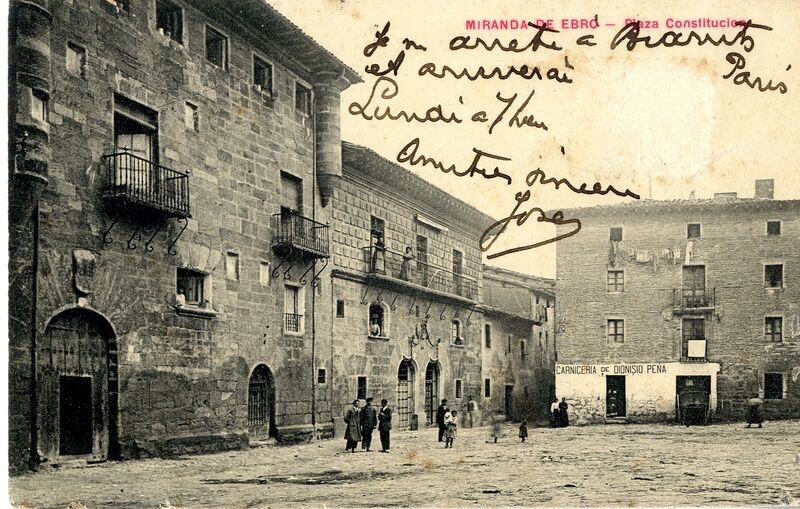 MIRANDA DE EBRO — Plaza Constitucion
Je m'arrête à Biarritz
et arriverai Paris
Lundi à 7 heu
Amitiés
José
CARNICERIA DE DIONISIO PEÑA